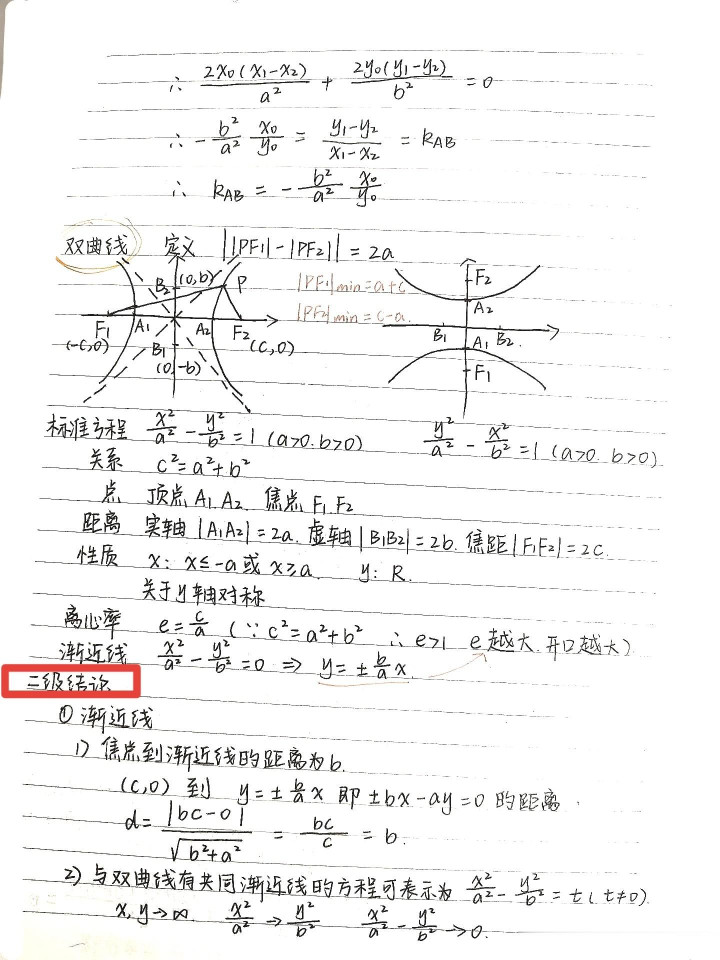 ∴ 2x₀(x₁-x₂)/a² + 2y₀(y₁-y₂)/b² = 0
∴ -b²/a² x₀/y₀ = (y₁-y₂)/(x₁-x₂) = kAB
∴ kAB = -b²/a² x₀/y₀
双曲线 定义 ||PF₁|-|PF₂|| = 2a
B₂ (0,b) P
|PF₁|min=a+c
|PF₂|min=c-a.
F₁ A₁ A₂ F₂
(-c,0) (c,0)
B₁
(0,-b)
F₂
A₂
B₁ B₂.
A₁
F₁
标准方程 x²/a² - y²/b² = 1 (a>0.b>0) y²/a² - x²/b² = 1 (a>0.b>0)
关系 c²=a²+b²
点 顶点 A₁.A₂. 焦点 F₁.F₂
距离 实轴|A₁A₂|=2a. 虚轴|B₁B₂|=2b. 焦距|F₁F₂|=2c.
性质 x: x≤-a或x≥a. y: R.
关于y轴对称
离心率 e=c/a (∵c²=a²+b² ∴e>1 e越大.开口越大)
渐近线 x²/a² - y²/b² = 0 ⇒ y=±b/a x.
二级结论
① 渐近线
1) 焦点到渐近线的距离为b.
(c,0) 到 y=±b/a x 即 ±bx-ay=0 的距离.
d= |bc-0|/√(b²+a²) = bc/c = b.
2) 与双曲线有共同渐近线的方程可表示为 x²/a² - y²/b² = t (t≠0)
x,y→∞. x²/a² → y²/b² x²/a² - y²/b² → 0.